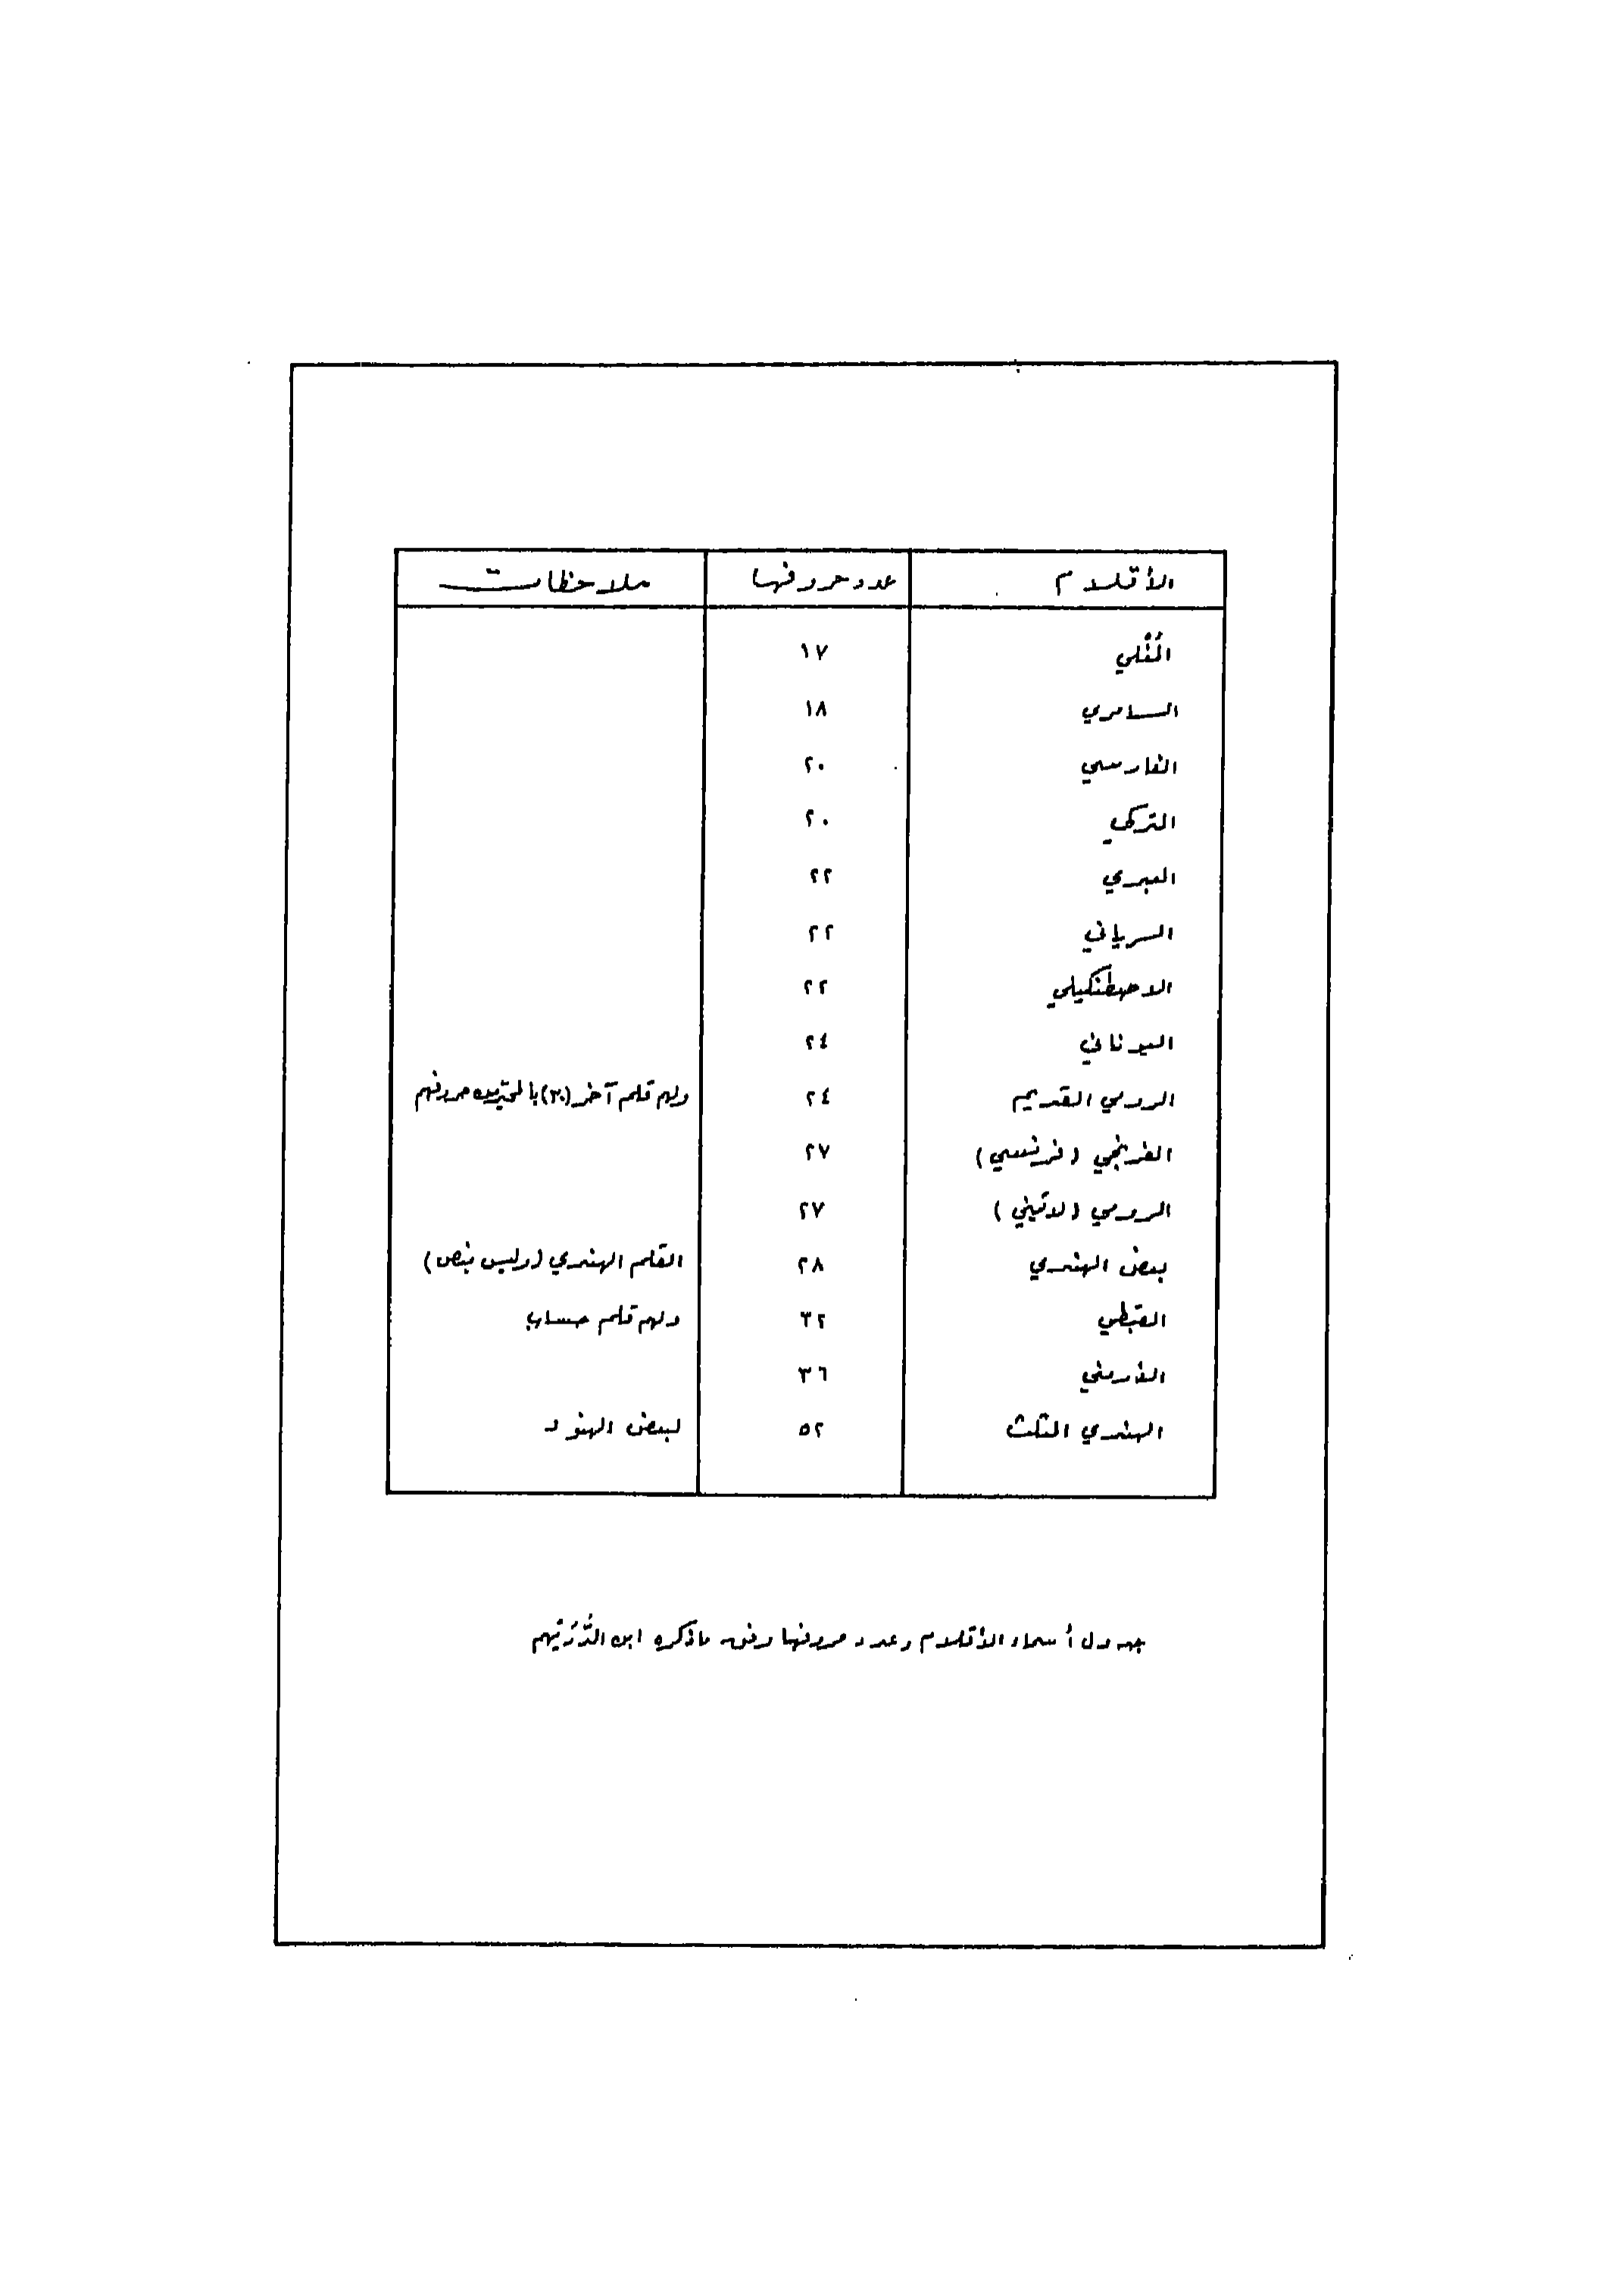 الأقلام عدد حروفها ملاحظات
المُغُلي ١٧
السامري ١٨
الفارسي ٢٠
التركي ٢٠
العبري ٢٢
السرياني ٢٢
٢٢
اليوناني ٢٤
الرومي القديم ٢٤ ولهم قلم آخر (٣٠) حروفهم
الفرنجي (فرنسي) ٢٧
الرومي (لاتيني) ٢٧
بعض الهندي ٢٨ القلم الهندي (وليس بنص)
القبطي ٣٢ ولهم قلم حساب
الأرمني ٣٦
الهندي المثلث ٥٢ لبعض الهنود
جدول أسماء الأقلام وعدد حروفها وفق ماذكره ابن الدُّرَيْهم